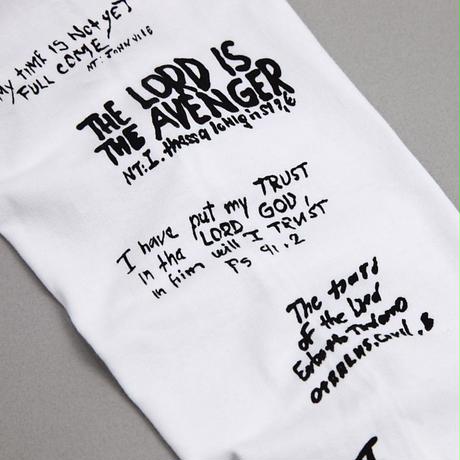 MY TIME IS NOT YET
FULL COME
NT: JOHN VII 6
THE LORD IS
THE AVENGER
NT: I.
I have put my TRUST
in tha LORD GOD,
in him will I TRUST
Ps 91.2
The
of the Lord